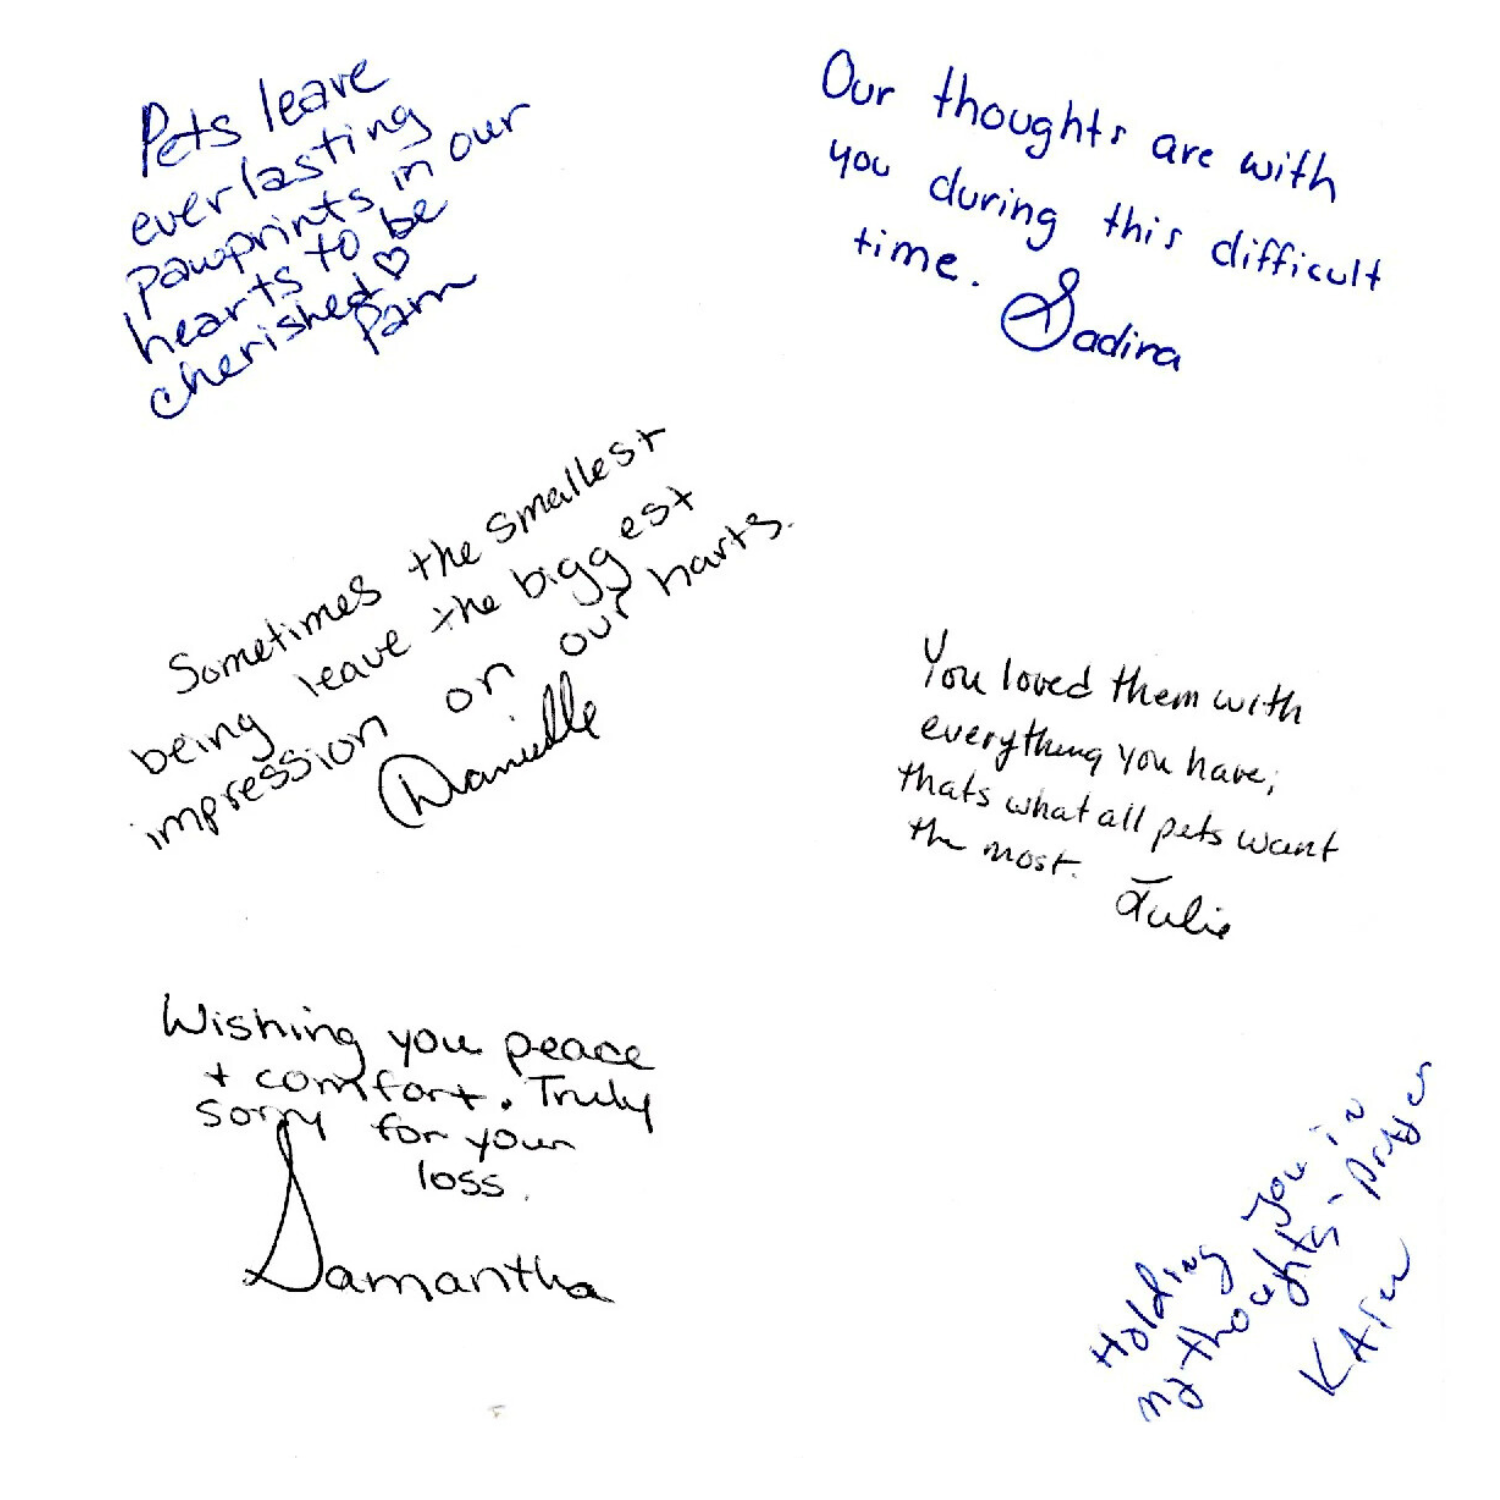 Pets leave
everlasting
pawprints in our
hearts to be
cherished ♡
Pam
Our thoughts are with
you during this difficult
time.
Sadira
Sometimes the smallest
being leave the biggest
impression on our harts.
Danielle
You loved them with
everything you have;
thats what all pets want
the most.
Julie
Wishing you peace
+ comfort. Truly
sorry for your
loss.
Samantha
Holding you in
my thoughts - prayers